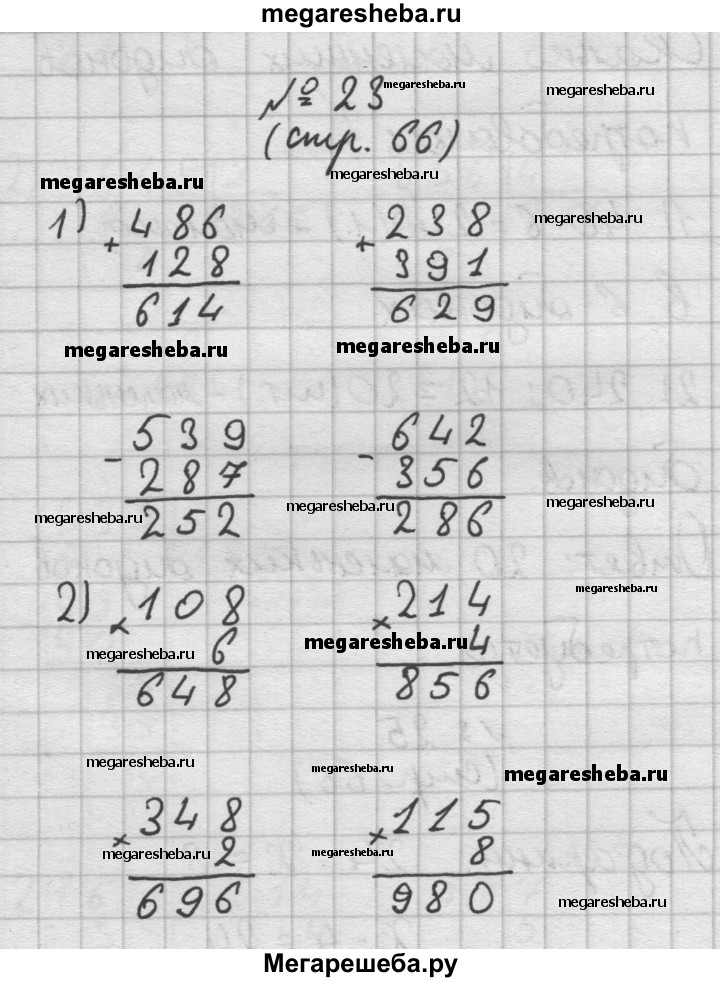 megaresheba.ru
№ 23 megaresheba.ru megaresheba.ru
(стр. 66) megaresheba.ru
megaresheba.ru
1) + 486 + 238 megaresheba.ru
128 391
614 629
megaresheba.ru megaresheba.ru
- 539 - 642
287 356
megaresheba.ru 252 megaresheba.ru 286 megaresheba.ru
2) × 108 × 214 megaresheba.ru
megaresheba.ru 6 megaresheba.ru 4
648 856
megaresheba.ru megaresheba.ru megaresheba.ru
× 348 × 115
megaresheba.ru 2 megaresheba.ru 8
696 980 megaresheba.ru
Мегарешеба.ру